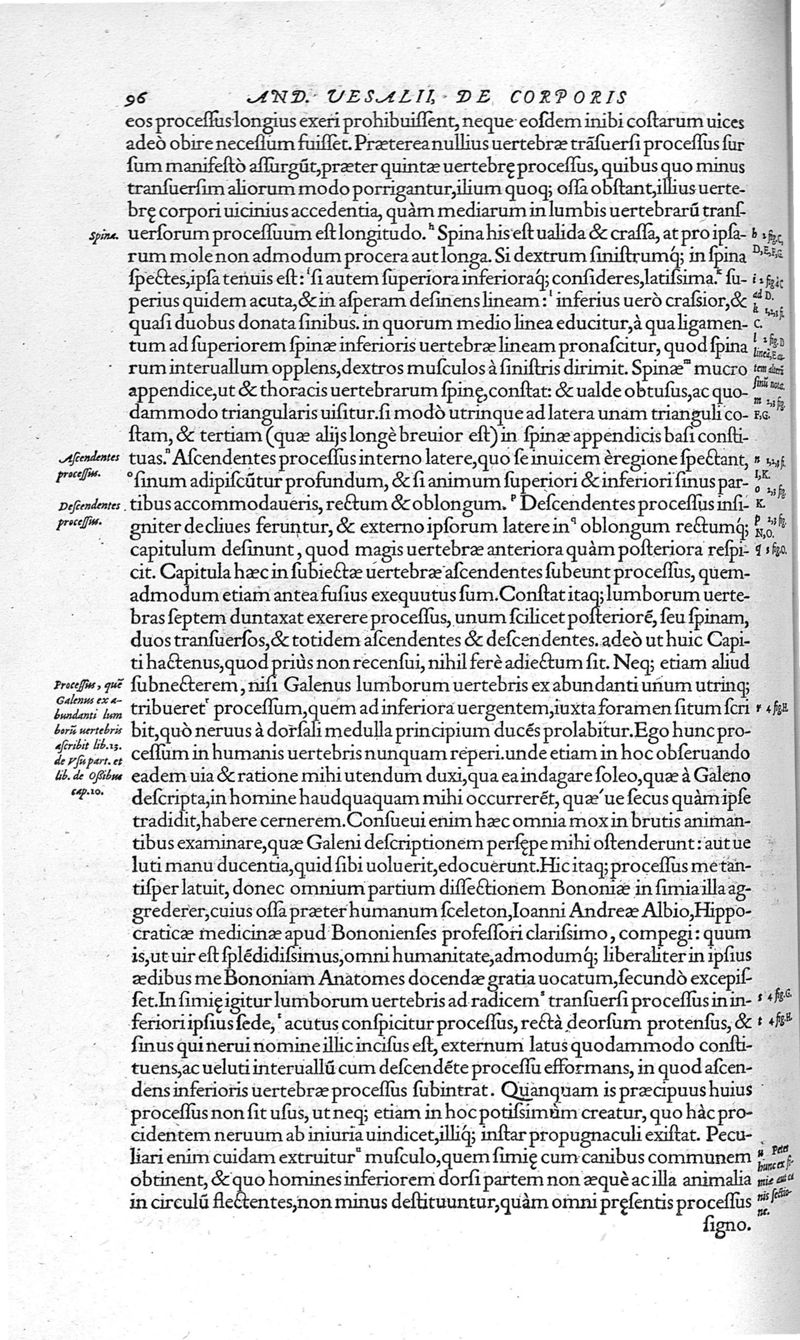 96 AND. VESALII, DE CORPORIS
eos proceſſus longius exeri prohibuiſſent, neque eoſdem inibi coſtarum uices
adeò obire neceſſum fuiſſet. Præterea nullius uertebræ trãſuerſi proceſſus ſur
ſum manifeſtò aſſurgũt, præter quintæ uertebrę proceſſus, quibus quo minus
tranſuerſim aliorum modo porrigantur, ilium quoq; oſſa obſtant, illius uerte-
brę corpori uicinius accedentia, quàm mediarum in lumbis uertebrarũ tranſ-
Spina.
uerſorum proceſſuum eſt longitudo. ʰ Spina his eſt ualida & craſſa, at pro ipſa-
rum mole non admodum procera aut longa. Si dextrum ſiniſtrumq́; in ſpina
ſpectes, ipſa tenuis eſt: ⁱ ſi autem ſuperiora inferioraq́; conſideres, latiſsima. ᵏ ſu-
perius quidem acuta, & in aſperam deſinens lineam: ˡ inferius uerò craſsior, &
quaſi duobus donata ſinibus. in quorum medio linea educitur, à qua ligamen-
tum ad ſuperiorem ſpinæ inferioris uertebræ lineam pronaſcitur, quod ſpina
rum interuallum opplens, dextros muſculos à ſiniſtris dirimit. Spinæ ᵐ mucro
appendice, ut & thoracis uertebrarum ſpinę, conſtat: & ualde obtuſus, ac quo-
dammodo triangularis uiſitur. ſi modò utrinque ad latera unam trianguli co-
ſtam, & tertiam (quæ alijs longè breuior eſt) in ſpinæ appendicis baſi conſti-
Aſcendentes
proceſſus.
tuas. ⁿ Aſcendentes proceſſus interno latere, quo ſe inuicem èregione ſpectant,
ᵒ ſinum adipiſcũtur profundum, & ſi animum ſuperiori & inferiori ſinus par-
Deſcendentes
proceſſus.
tibus accommodaueris, rectum & oblongum. ᵖ Deſcendentes proceſſus inſi-
gniter decliues feruntur, & externo ipſorum latere in ᑫ oblongum rectumq́;
capitulum deſinunt, quod magis uertebræ anteriora quàm poſteriora reſpi-
cit. Capitula hæc in ſubiectæ uertebræ aſcendentes ſubeunt proceſſus, quem-
admodum etiam antea fuſius exequutus ſum. Conſtat itaq; lumborum uerte-
bras ſeptem duntaxat exerere proceſſus, unum ſcilicet poſteriorẽ, ſeu ſpinam,
duos tranſuerſos, & totidem aſcendentes & deſcendentes. adeò ut huic Capi-
ti hactenus, quod priùs non recenſui, nihil ferè adiectum ſit. Neq; etiam aliud
Proceſſus, quẽ
Galenus ex a-
bundanti lum
borũ uertebris
aſcribit lib. 13.
de Vſu part. et
lib. de Oßibus
cap. 10.
ſubnecterem, niſi Galenus lumborum uertebris ex abundanti unum utrinq;
tribueret ʳ proceſſum, quem ad inferiora uergentem, iuxta foramen ſitum ſcri
bit, quò neruus à dorſali medulla principium ducẽs prolabitur. Ego hunc pro-
ceſſum in humanis uertebris nunquam reperi. unde etiam in hoc obſeruando
eadem uia & ratione mihi utendum duxi, qua ea indagare ſoleo, quæ à Galeno
deſcripta, in homine haudquaquam mihi occurrerẽt, quæ´ue ſecus quàm ipſe
tradidit, habere cernerem. Conſueui enim hæc omnia mox in brutis animan-
tibus examinare, quæ Galeni deſcriptionem perſępe mihi oſtenderunt: aut ue
luti manu ducentia, quid ſibi uoluerit, edocuerunt. Hic itaq; proceſſus me tan-
tiſper latuit, donec omnium partium diſſectionem Bononiæ in ſimia illa ag-
grederer, cuius oſſa præter humanum ſceleton, Ioanni Andreæ Albio, Hippo-
craticæ medicinæ apud Bononienſes profeſſori clariſsimo, compegi: quum
is, ut uir eſt ſplẽdidiſsimus, omni humanitate, admodumq́; liberaliter in ipſius
ædibus me Bononiam Anatomes docendæ gratia uocatum, ſecundò excepiſ-
ſet. In ſimię igitur lumborum uertebris ad radicem ˢ tranſuerſi proceſſus in in-
feriori ipſius ſede, ᵗ acutus conſpicitur proceſſus, rectà deorſum protenſus, &
ſinus qui nerui nomine illic inciſus eſt, externum latus quodammodo conſti-
tuens, ac ueluti interuallũ cum deſcendẽte proceſſu efformans, in quod aſcen-
dens inferioris uertebræ proceſſus ſubintrat. Quanquam is præcipuus huius
proceſſus non ſit uſus, ut neq; etiam in hoc potiſsimùm creatur, quo hàc pro-
cidentem neruum ab iniuria uindicet, illiq́; inſtar propugnaculi exiſtat. Pecu-
liari enim cuidam extruitur ᵘ muſculo, quem ſimię cum canibus communem
obtinent, & quo homines inferiorem dorſi partem non æquè ac illa animalia
in circulũ flectentes, non minus deſtituuntur, quàm omni pręſentis proceſſus
ſigno.
h 2 fig. C,
D, E, F, G.
m 2,3 fig.
F, G.
n 1,2,3 fi.
I, K.
o 2,3 fig.
K.
p 2,3 fig.
N, O.
q 3 fig. O.
r 4 fig. H.
s 4 fig. G.
t 4 fig. H.